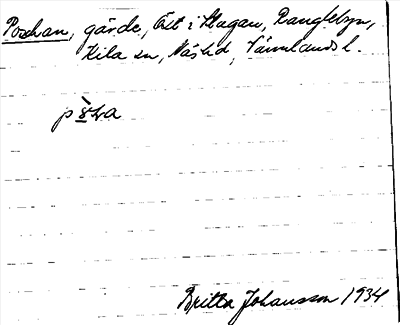 Poschan, gärde, Öst i Hagan, Ranglebyn,
Kila sn, Näs hd, Värmlands l.
Britta Johansson 1934